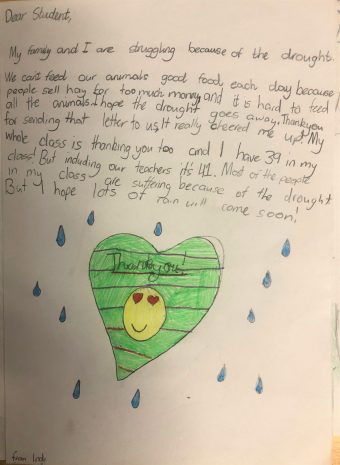 Dear Student,
My family and I are struggling because of the drought.
We can't feed our animals good food each day because
people sell hay for too much money and it is hard to feed
all the animals. I hope the drought goes away. Thankyou
for sending that letter to us. It really cheered me up! My
whole class is thanking you too and I have 39 in my
class! But including our teachers it's 41. Most of the people
in my class are suffering because of the drought
But I hope lots of rain will come soon!
Thankyou!
from